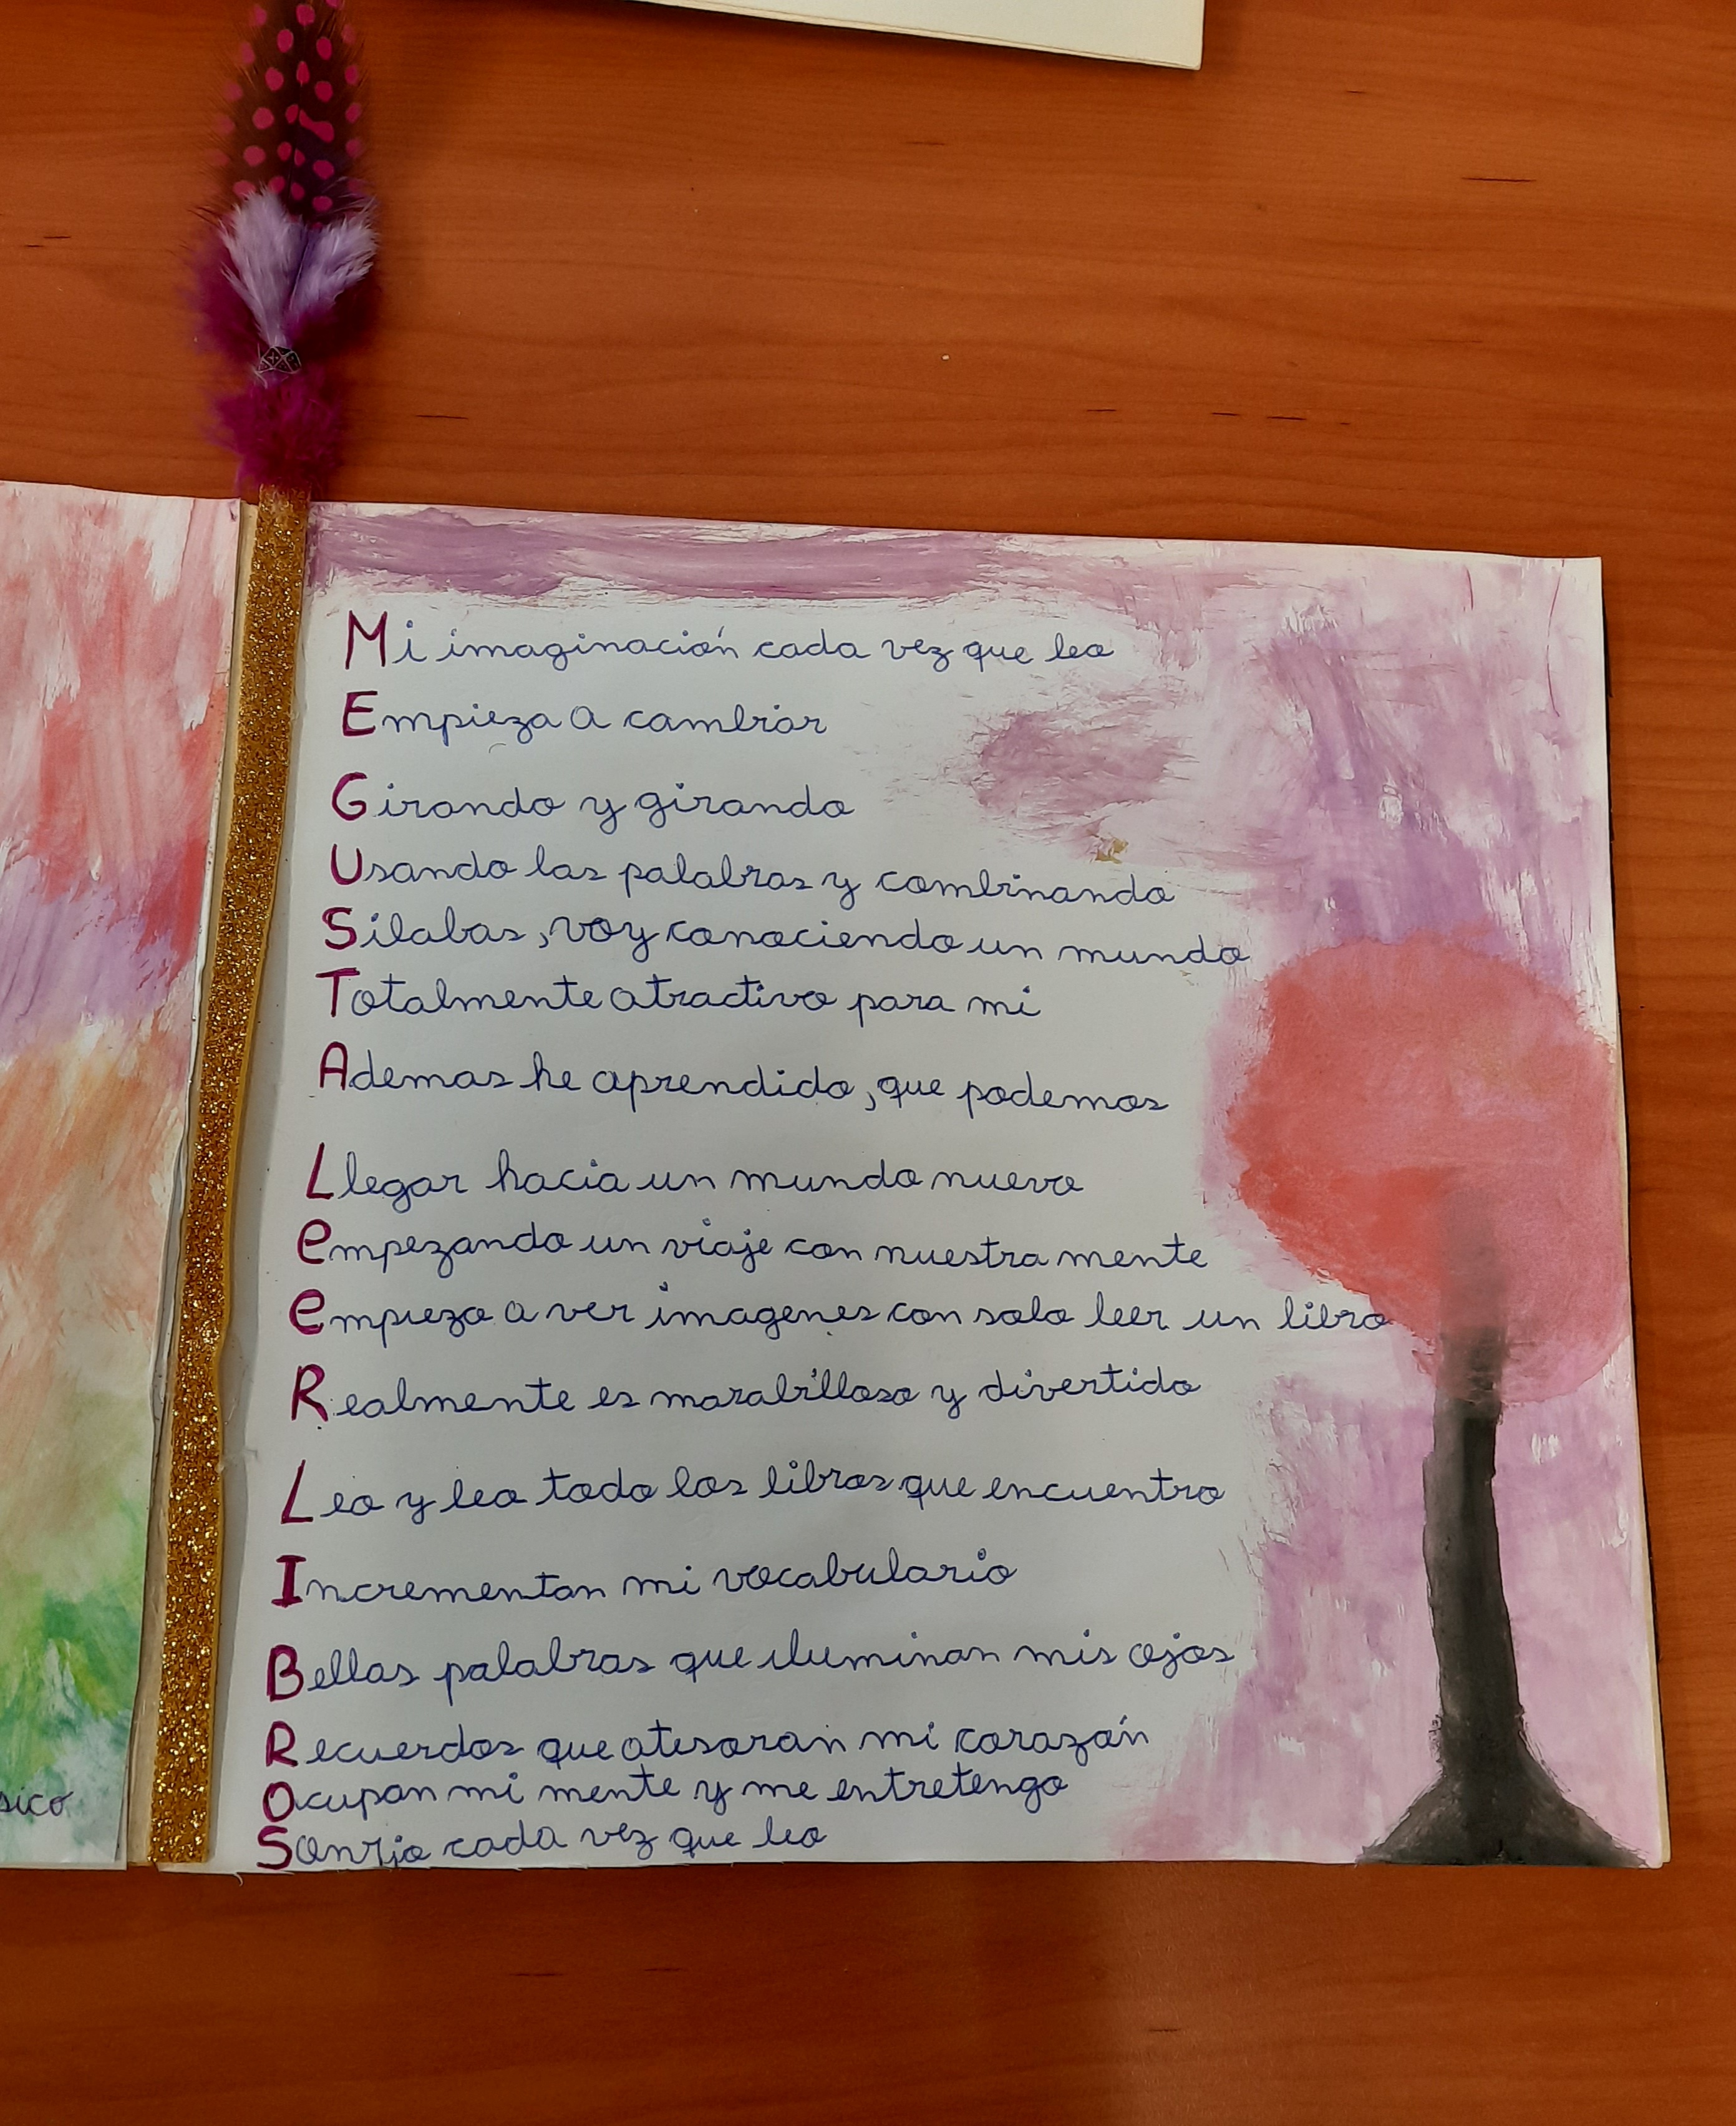 Mi imaginación cada vez que leo
Empieza a cambiar
Girando y girando
Usando las palabras y combinando
Silabas, voy conociendo un mundo
Totalmente atractivo para mi
Ademas he aprendido, que podemos
Llegar hacia un mundo nuevo
empezando un viaje con nuestra mente
empiezo a ver imagenes con solo leer un libro
Realmente es marabilloso y divertido
Leo y leo todo los libros que encuentro
Incrementan mi vocabulario
Bellas palabras que iluminan mis ojos
Recuerdos que atesoran mi corazón
Ocupan mi mente y me entretengo
Sonrio cada vez que leo